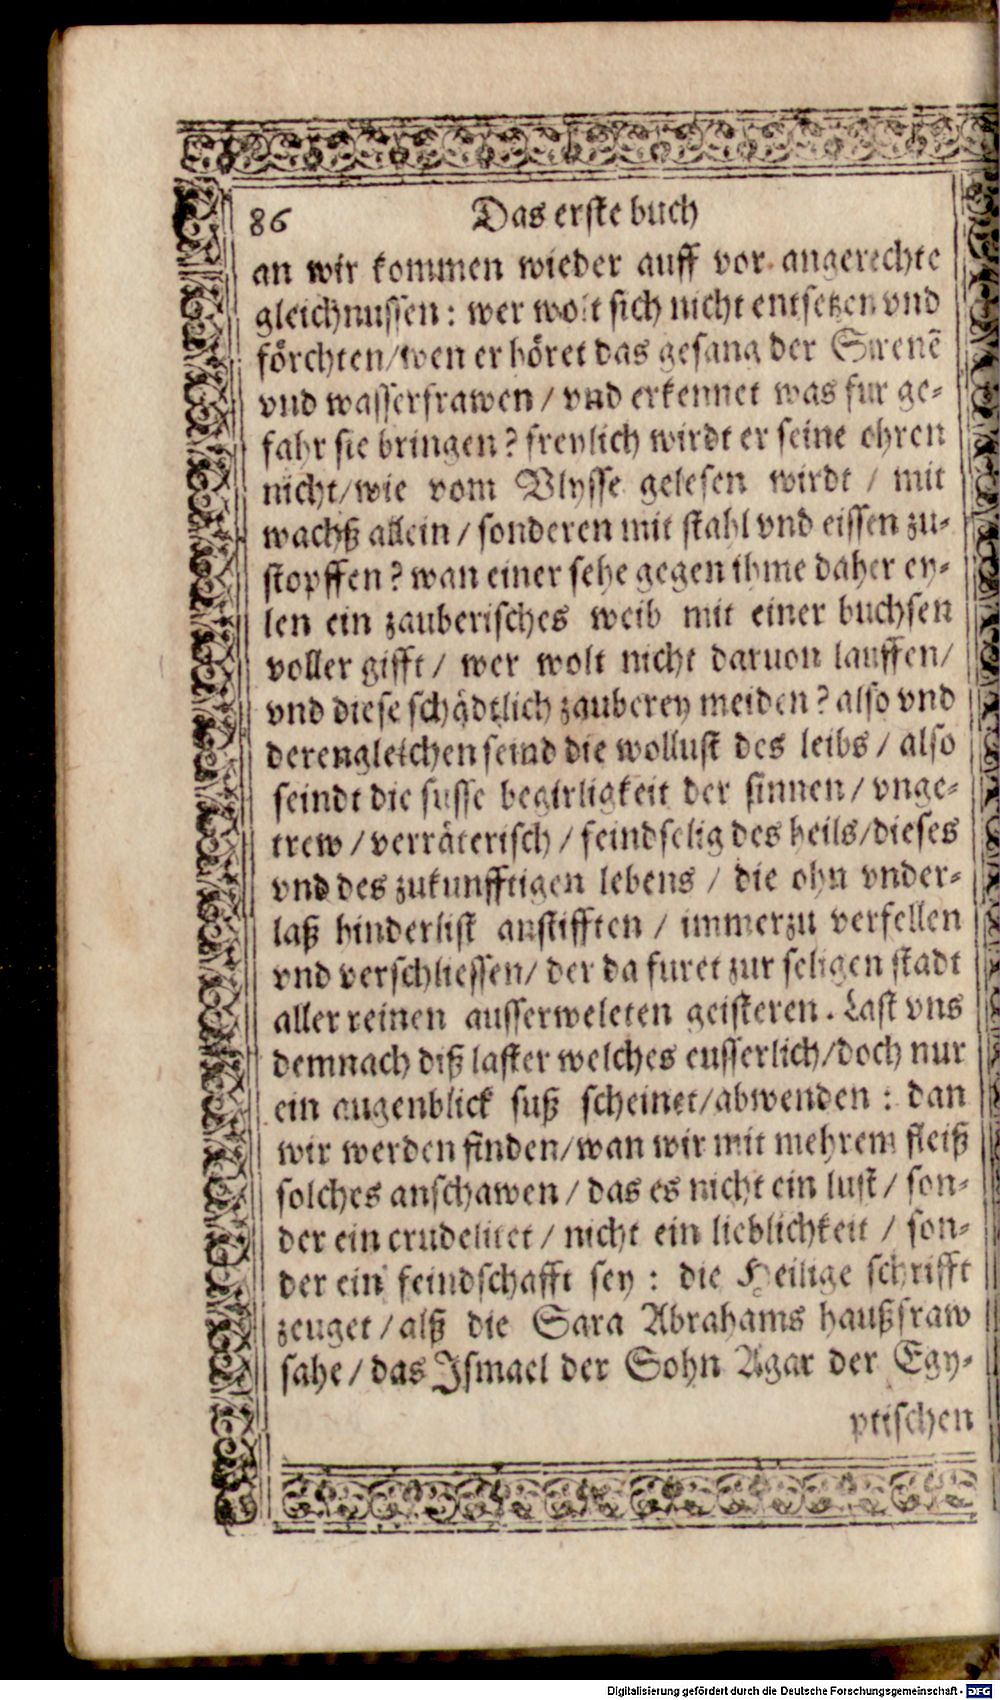 86 Das erste buch
an wir kommen wieder auff vor angerechte
gleichnussen: wer wolt sich nicht entsetzen vnd
förchten/wen er höret das gesang der Sirenē
vnd wasserfrawen / vnd erkennet was fur ge-
fahr sie bringen? freylich wirdt er seine ohren
nicht/wie vom Vlysse gelesen wirdt / mit
wachß allein / sonderen mit stahl vnd eissen zu-
stopffen? wan einer sehe gegen ihme daher ey-
len ein zauberisches weib mit einer buchsen
voller gifft / wer wolt nicht daruon lauffen/
vnd diese schädtlich zauberey meiden? also vnd
derengleichen seind die wollust des leibs / also
seindt die susse begirligkeit der sinnen / vnge-
trew / verräterisch / feindselig des heils/dieses
vnd des zukunfftigen lebens / die ohn vnder-
laß hinderlist anstifften / immerzu verfellen
vnd verschliessen/ der da furet zur seligen stadt
aller reinen ausserweleten geisteren. Last vns
demnach diß laster welches eusserlich/doch nur
ein augenblick suß scheinet/abwenden: dan
wir werden finden/wan wir mit mehrem fleiß
solches anschawen / das es nicht ein lust / son-
der ein crudelitet / nicht ein lieblichkeit / son-
der ein feindschafft sey: die Heilige schrifft
zeuget / alß die Sara Abrahams haußfraw
sahe / das Ismael der Sohn Agar der Egy-
ptischen
Digitalisierung gefördert durch die Deutsche Forschungsgemeinschaft - DFG